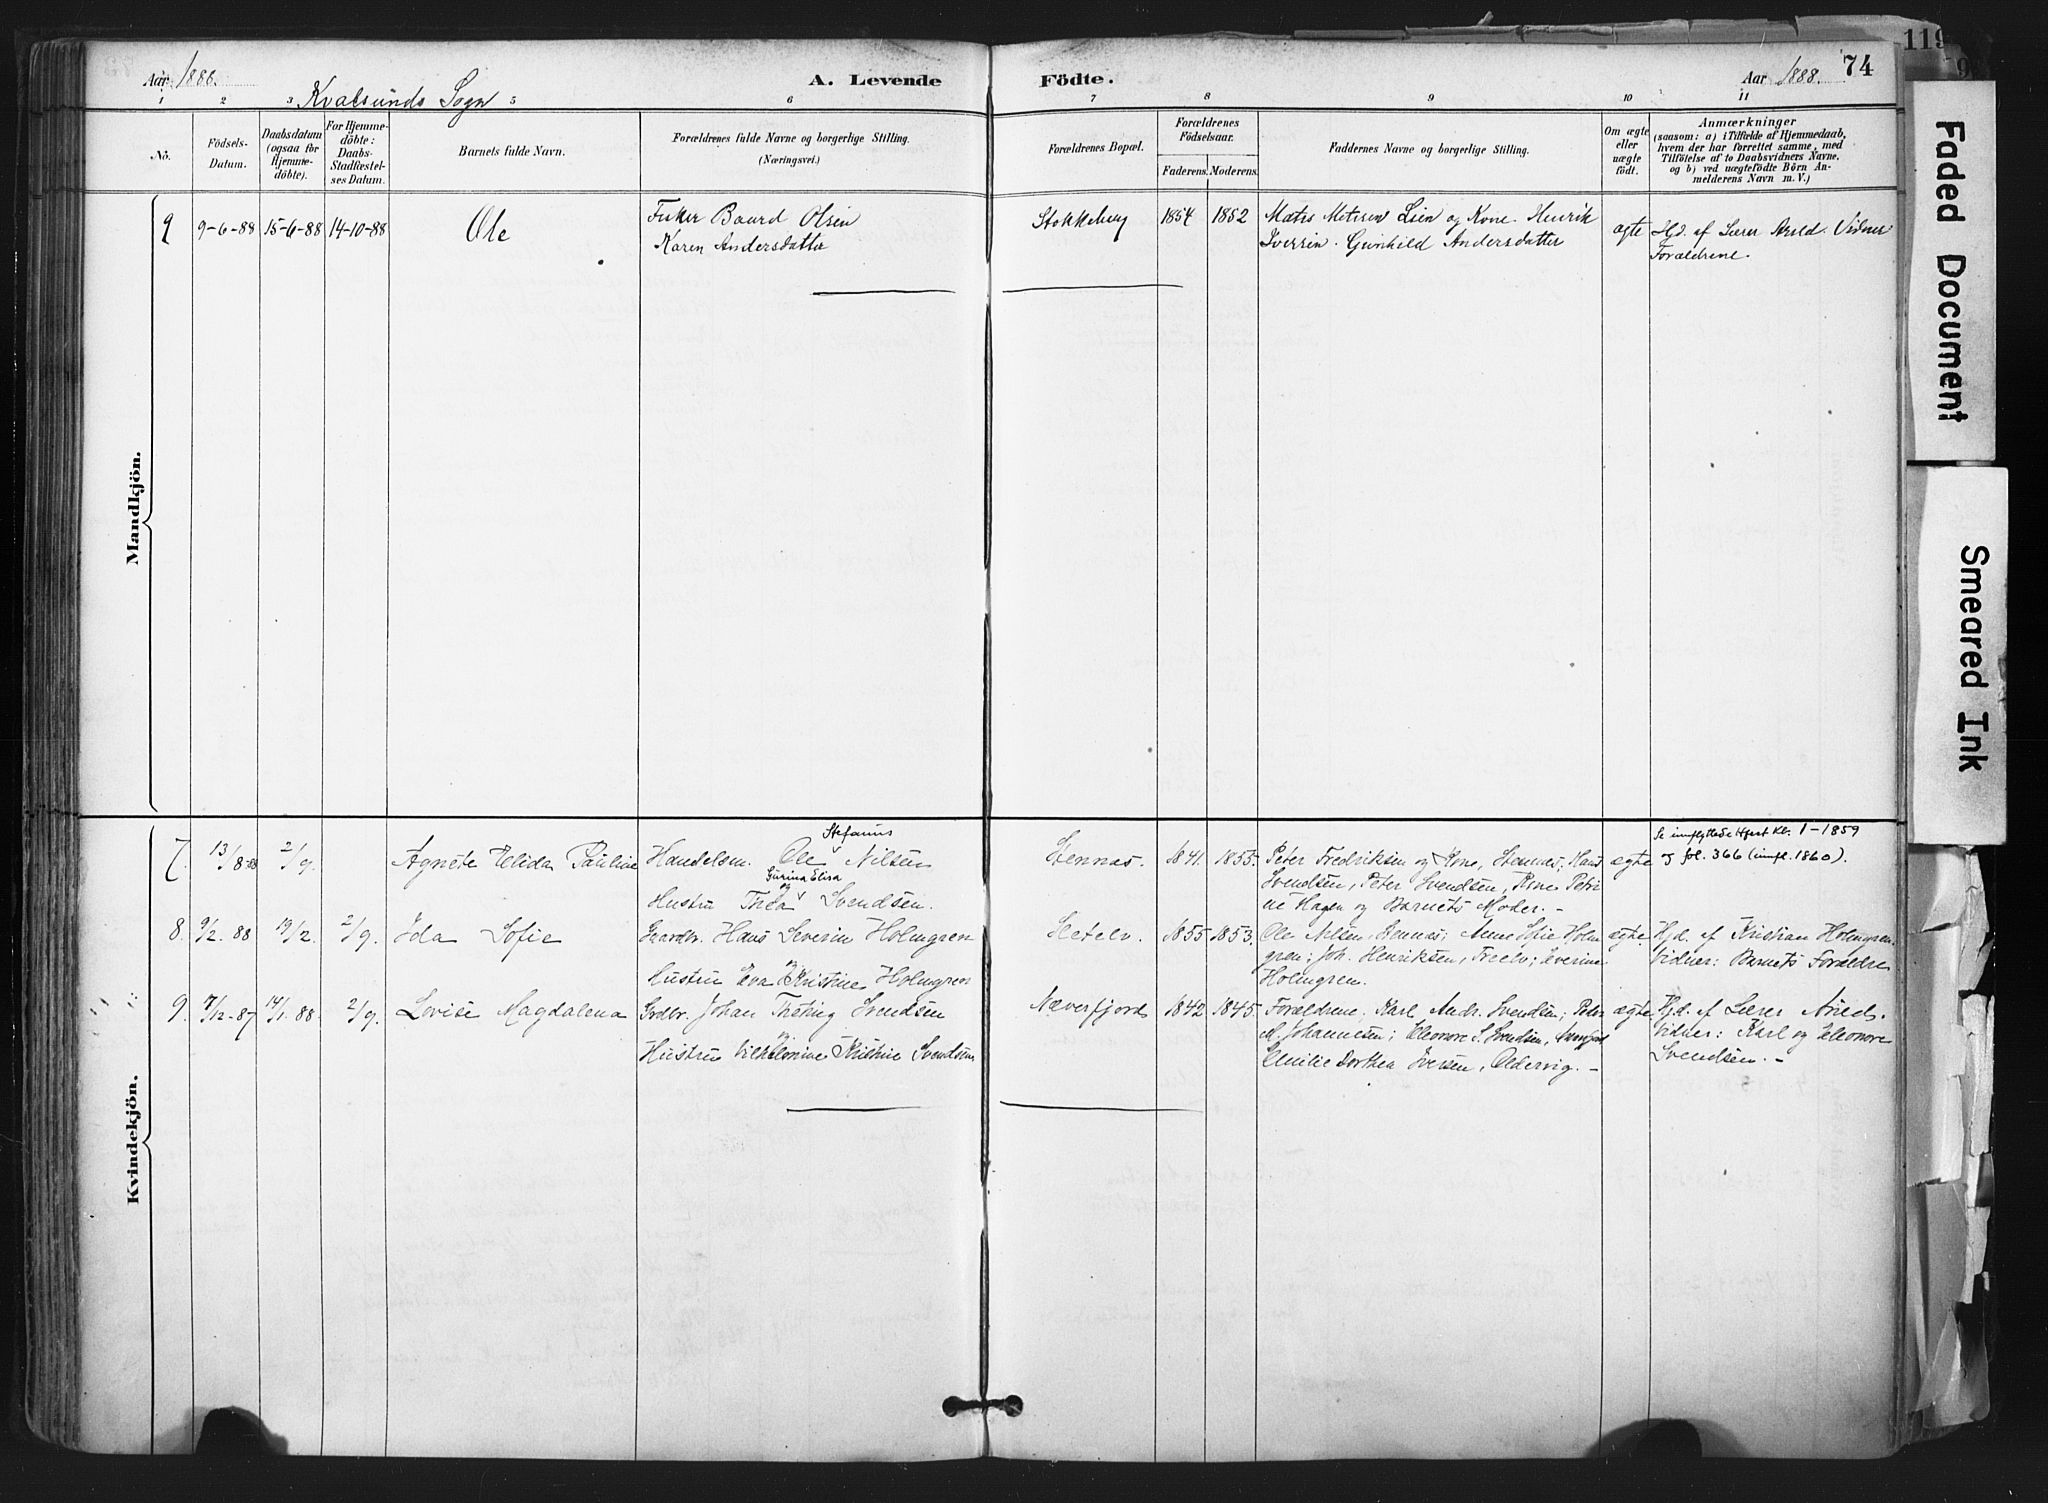 119
74
Aar 1888.
A. Levende Födte.
Aar 1888.
Kvalsunds Sogn
1 2 3 5 6 7 8 9 10 11
No.
Födsels-
Datum.
Daabsdatum
(ogsaa for
Hjemme-
döbte).
For Hjemme-
döbte:
Daabs-
Stadfæstel-
ses Datum.
Barnets fulde Navn.
Forældrenes fulde Navne og borgerlige Stilling.
(Næringsvei.)
Forældrenes Bopæl.
Forældrenes
Födselsaar.
Faderens. Moderens.
Faddernes Navne og borgerlige Stilling.
Om ægte
eller
uægte
födt.
Anmærkninger
(saasom: a) i Tilfælde af Hjemmedaab,
hvem der har forrettet samme, med
Tilföielse af to Daabsvidners Navne,
og b) ved uægtefödte Börn An-
melderens Navn m. V.)
Mandkjön.
9 9-6-88 15-6-88 14-10-88 Ole
Fisker Baard Olsen
Karen Andersdatter
Stokkeberg 1854 1852
Mats Matesen Lien og Kone. Henrik
Iversen. Gunhild Andersdatter
ægte
Hjd. af Lærer Arild. Vidner
Forældrene.
Kvindekjön.
7. 13/8 88 2/9. Agnete Elida Pauline
Stefanus
Handelsm. Ole Nilsen
Gurina Elisa
og
Hustru Thea Svendsen.
Stennæs. 1841. 1855.
Peter Fredriksen og Kone, Stennæs; Hans
Svendsen, Peter Svendsen, Kone Petri
ne Hagen og Barnets Moder. -
ægte
Se innflyttede Hfest Kl. 1-1859
og fol. 366 (innfl. 1860).
8. 9/2. 88 19/2. 2/9. Ida Sofie
Gaardbr. Hans Severin Holmgren
og
Hustru Eva Kristine Holmgren
1855 1853.
Ole Nilsen, Stennæs; Anne Sofie Holm
gren; Joh. Henriksen, Severine
Holmgren.
ægte
Hjd. af Kristian Holmgren.
Vidner: Barnets Forældre
9. 7/12-87 14/1. 88. 2/9. Lovise Magdalena
Grdbr. Johan Svendsen
og
Hustru Vilhelmine Kristine Svendsen
Næverfjord 1842 1845.
Forældrene, Karl Andr. Svendsen; Peter
M. Johannesen; Eleonore S. Svendsen,
Emilie Dorthea Iversen, Oldervig. -
ægte
Hjd. af Lærer Arild.
Vidner: Karl og Eleonore
Svendsen. -
Faded Document
Smeared Ink